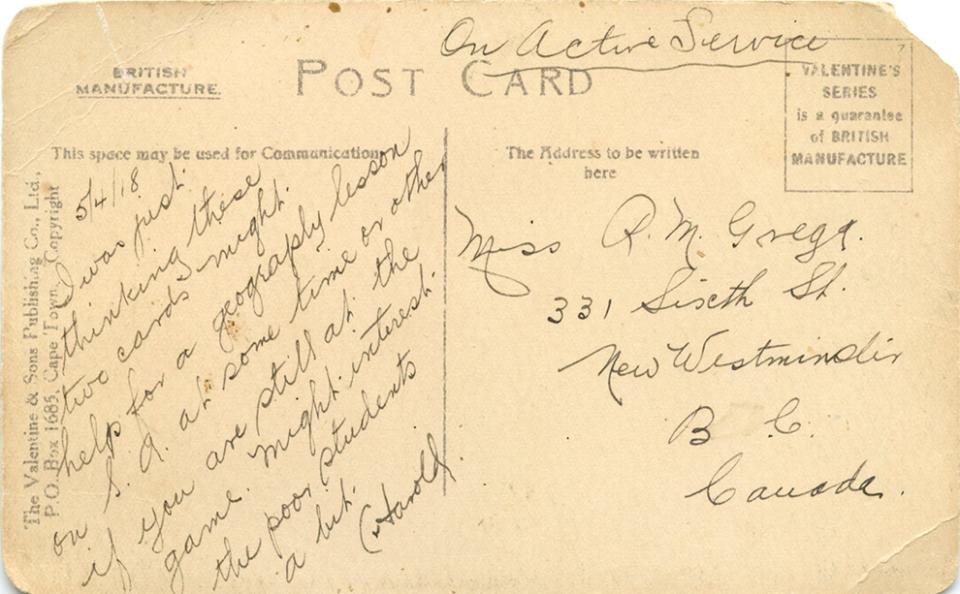 On Active Service
BRITISH
MANUFACTURE.
POST CARD
VALENTINE'S
SERIES
is a guarantee
of BRITISH
MANUFACTURE
This space may be used for Communication
The Address to be written
here
The Valentine & Sons Publishing Co., Ltd.,
P.O. Box 1685, Cape Town. Copyright
5/4/18
I was just
thinking these
two cards might
help for a geography lesson
on S. A. at some time or other
if you are still at the
game. Might interest
the poor students
a bit.
Harold
Miss R. M. Gregg.
331 Sixth St.
New Westminster
B C.
Canada.